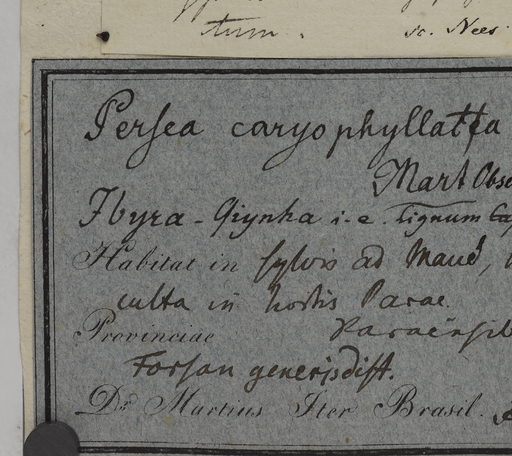 tum. sc. Nees.
Persea caryophyllatta
Mart Obse
Ibyra-Qiynha i.e. lignum
Habitat in sylvis ad Maué,
culta in hortis Parae.
Provinciae Paraënsi
Forsan generis dist.
Dr. Martius Iter Brasil.